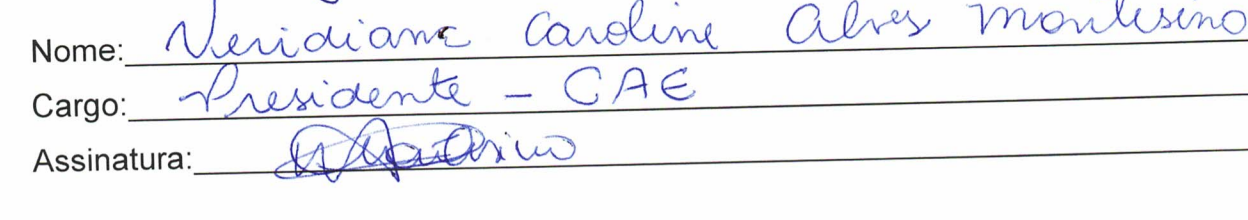 Nome: Veridiana Caroline Alves Montesino
Cargo: Presidente - CAE
Assinatura: